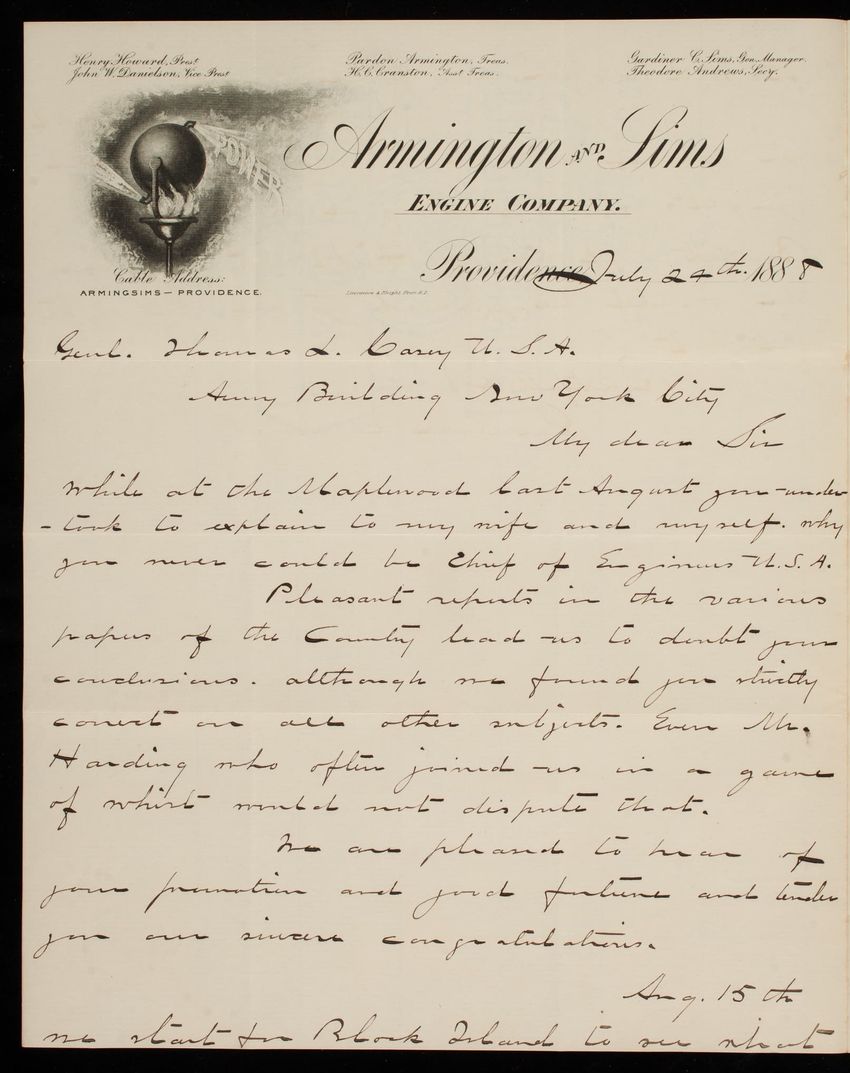 Henry Howard, Prest.
John W. Danielson, Vice Prest.
Pardon Armington, Treas.
H. C. Cranston, Asst Treas.
Gardiner C. Sims, Gen. Manager.
Theodore Andrews, Secy.
POWER
Armington AND Sims
ENGINE COMPANY.
Cable Address:
ARMINGSIMS — PROVIDENCE.
Providence, July 24th. 1888
Genl. Thomas L. Casey U. S. A.
Army Building New York City
My dear Sir
While at the Maplewood last August you under
-took to explain to my wife and myself. why
you never could be Chief of Engineers U. S. A.
Pleasant reports in the various
papers of the Country lead us to doubt your
conclusions. although we found you strictly
correct on all other subjects. Even Mr.
Harding who often joined us in a game
of whist would not dispute that.
We are pleased to hear of
your promotion and good fortune and tender
you our sincere congratulations.
Aug. 15th
we start for Block Island to see what